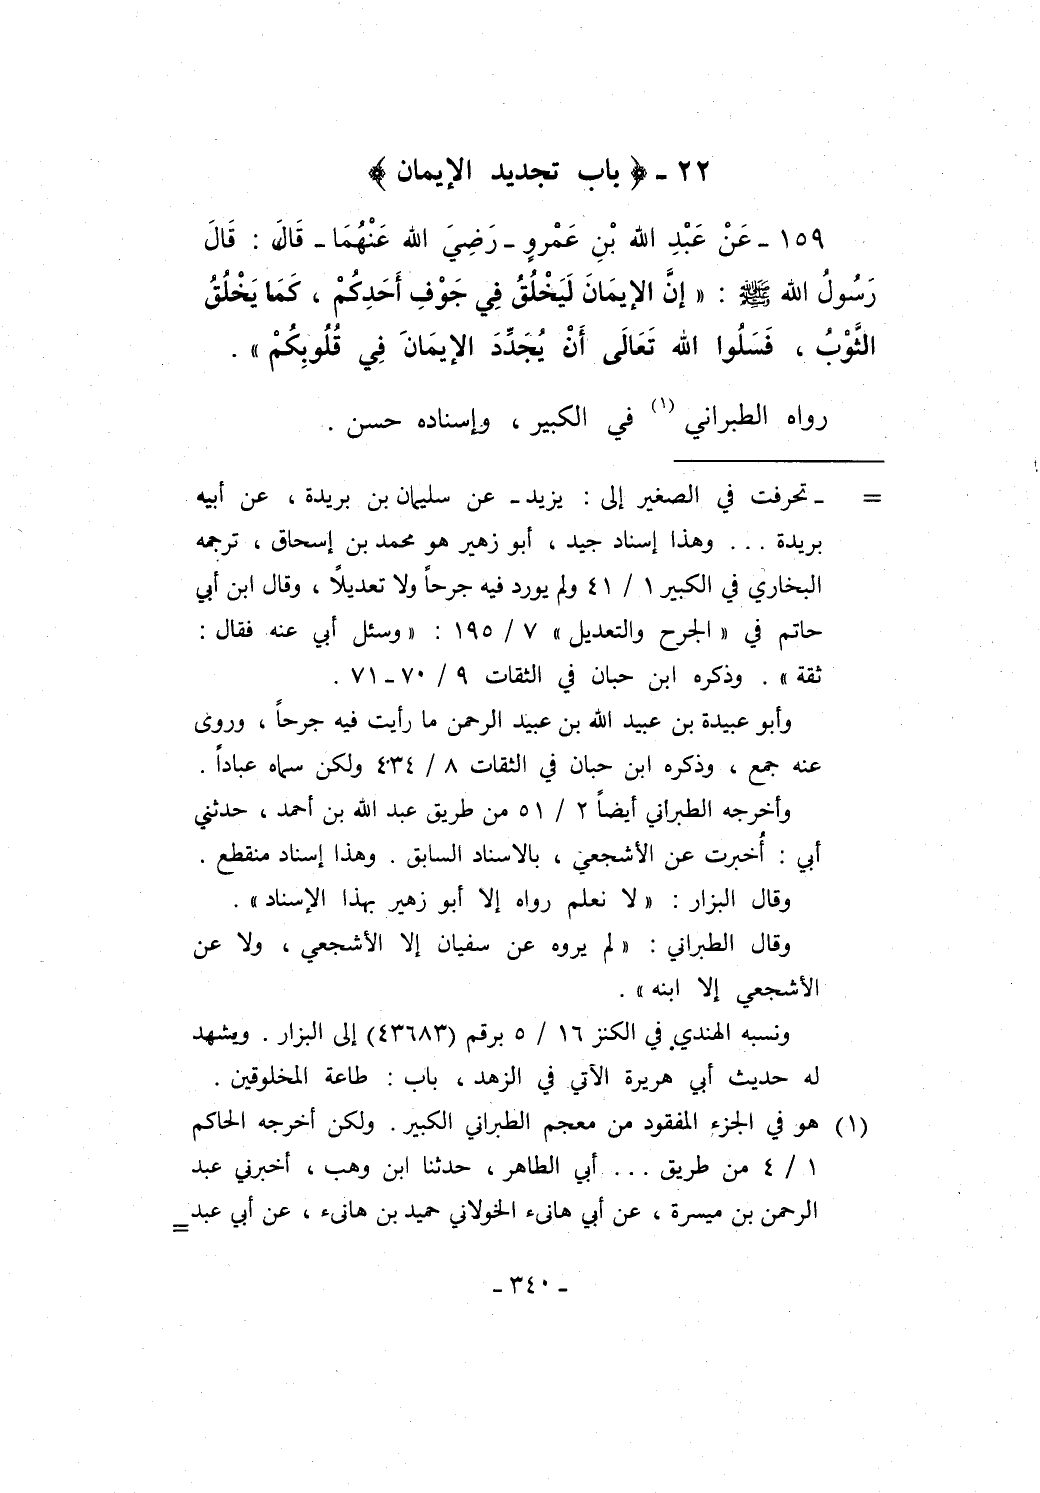 ٢٢ ـ ﴿ باب تجديد الإيمان ﴾
١٥٩ ـ عَنْ عَبْدِ الله بْنِ عَمْرٍو ـ رَضِيَ الله عَنْهُمَا ـ قَالَ : قَالَ
رَسُولُ الله ﷺ : « إنَّ الإيمَانَ لَيَخْلُقُ فِي جَوْفِ أَحَدِكُمْ ، كَمَا يَخْلُقُ
الثَّوْبُ ، فَسَلُوا الله تَعَالَى أَنْ يُجَدِّدَ الإيمَانَ فِي قُلُوبِكُمْ » .
رواه الطبراني (١) في الكبير ، وإسناده حسن .
= ـ تحرفت في الصغير إلى : يزيد ـ عن سليمان بن بريدة ، عن أبيه
بريدة ... وهذا إسناد جيد ، أبو زهير هو محمد بن إسحاق ، ترجمه
البخاري في الكبير ١ / ٤١ ولم يورد فيه جرحاً ولا تعديلاً ، وقال ابن أبي
حاتم في « الجرح والتعديل » ٧ / ١٩٥ : « وسئل أبي عنه فقال :
ثقة » . وذكره ابن حبان في الثقات ٩ / ٧٠ ـ ٧١ .
وأبو عبيدة بن عبيد الله بن عبيد الرحمن ما رأيت فيه جرحاً ، وروى
عنه جمع ، وذكره ابن حبان في الثقات ٨ / ٤٣٤ ولكن سماه عباداً .
وأخرجه الطبراني أيضاً ٢ / ٥١ من طريق عبد الله بن أحمد ، حدثني
أبي : أُخبرت عن الأشجعي ، بالاسناد السابق . وهذا إسناد منقطع .
وقال البزار : « لا نعلم رواه إلا أبو زهير بهذا الإسناد » .
وقال الطبراني : « لم يروه عن سفيان إلا الأشجعي ، ولا عن
الأشجعي إلا ابنه » .
ونسبه الهندي في الكنز ١٦ / ٥ برقم (٤٣٦٨٣) إلى البزار . ويشهد
له حديث أبي هريرة الآتي في الزهد ، باب : طاعة المخلوقين .
(١) هو في الجزء المفقود من معجم الطبراني الكبير . ولكن أخرجه الحاكم
١ / ٤ من طريق ... أبي الطاهر ، حدثنا ابن وهب ، أخبرني عبد
الرحمن بن ميسرة ، عن أبي هانىء الخولاني حميد بن هانىء ، عن أبي عبد =
ـ ٣٤٠ ـ